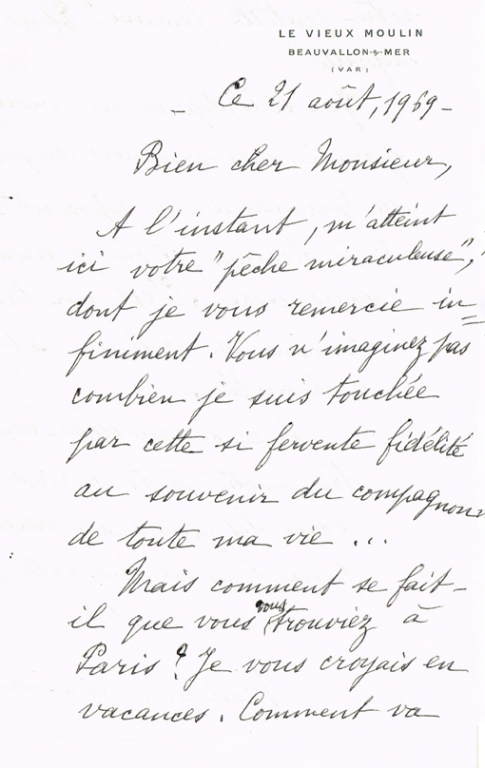 LE VIEUX MOULIN
BEAUVALLON-S-MER
(VAR)
- Ce 21 août, 1969-
Bien cher Monsieur,
A l'instant, m'atteint
ici votre "pêche miraculeuse",
dont je vous remercie in=
finiment. Vous n'imaginez pas
combien je suis touchée
par cette si fervente fidélité
au souvenir du compagnon
de toute ma vie ...
Mais comment se fait-
il que vous vous trouviez à
Paris ? Je vous croyais en
vacances. Comment va